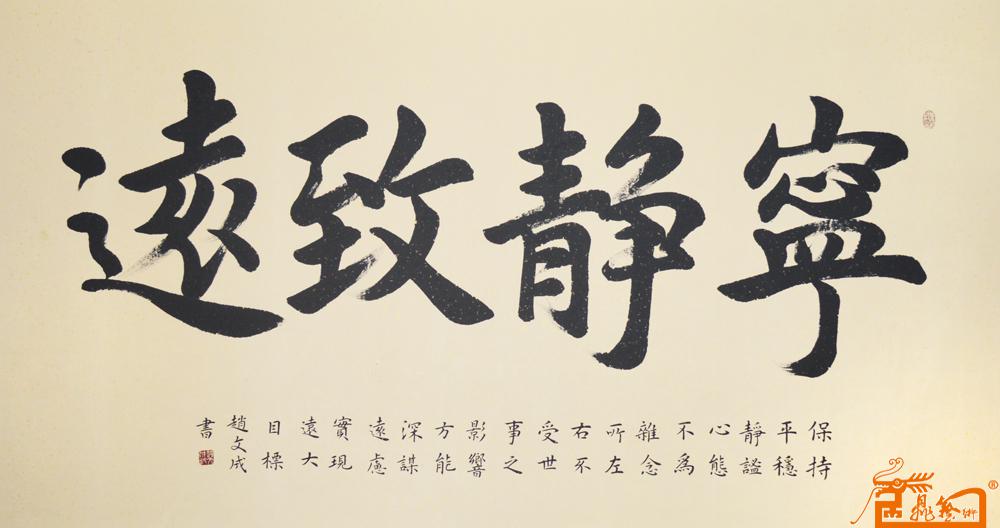 寧静致遠
保持
平穩
靜謐
心態
不為
雜念
所左
右不
受世
事之
影響
方能
深謀
遠慮
實現
遠大
目標
趙文成
書